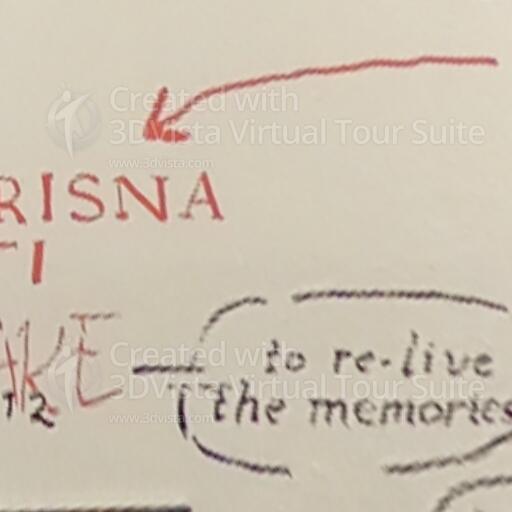 Created with
3DVista Virtual Tour Suite
www.3dvista.com
RISNA
TI
AKE
12
to re-live
the memories
Created with
3DVista Virtual Tour Suite
www.3dvista.com